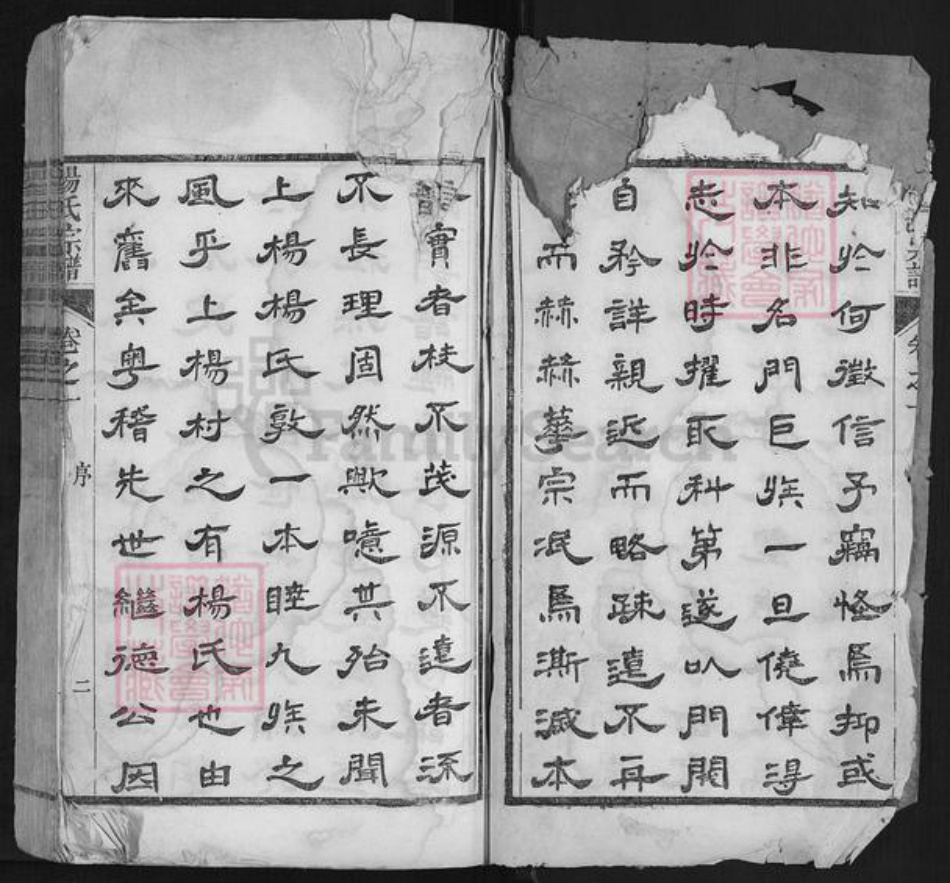 知於何徵信予竊怪焉抑或
本非名門巨族一旦僥倖得
志於時擢取科第遂以門閥
自矜詳親近而略疎遠不再
而赫赫華宗泯焉澌滅本
實者枝不茂源不遠者流
不長理固然歟噫其殆未聞
上楊楊氏敦一本睦九族之
風乎上楊村之有楊氏也由
來舊矣粵稽先世繼德公因
楊氏宗譜
卷之一
序
二
FamilySearch